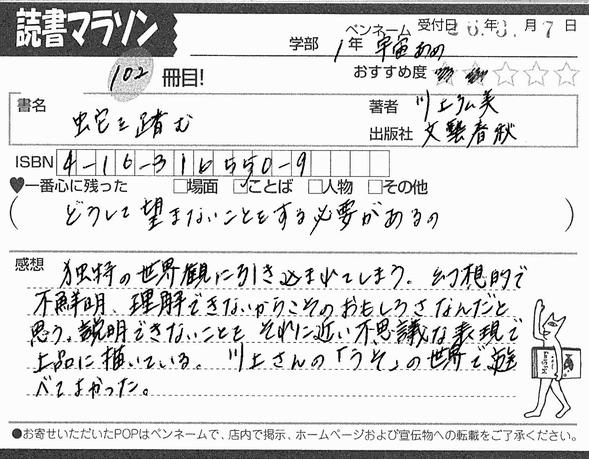 読書マラソン
学部 1年 ペンネーム 宇宙あめ 受付日 年 月 7日
102冊目! おすすめ度 ☆☆☆☆☆
書名 蛇を踏む 著者 川上弘美
出版社 文藝春秋
ISBN 4-16-316550-9
♥一番心に残った □場面 ☑ことば □人物 □その他
(どうして望まないことをする必要があるの)
感想 独特の世界観に引き込まれてしまう。幻想的で
不鮮明、理解できないからこそのおもしろさなんだと
思う。説明できないことを それに近い不思議な表現で
上品に描いている。 川上さんの「うそ」の世界で遊
べてよかった。
●お寄せいただいたPOPはペンネームで、店内で掲示、ホームページおよび宣伝物への転載をご了承ください。